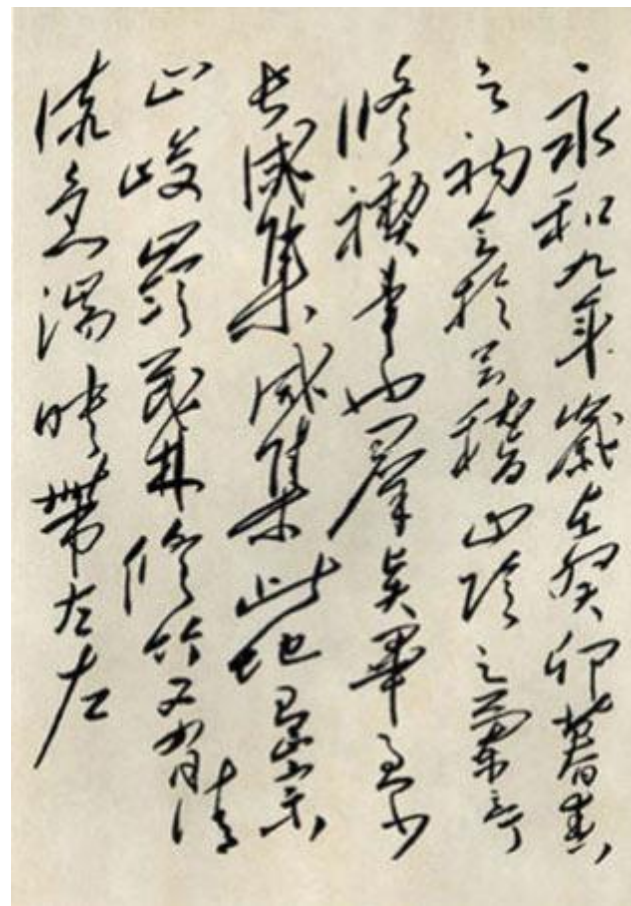 永和九年歲在癸卯暮春
之初會於會稽山陰之蘭亭
修禊事也羣賢畢至少
長咸集咸集此地有崇
山峻嶺茂林修竹又有清
流急湍映帶左左